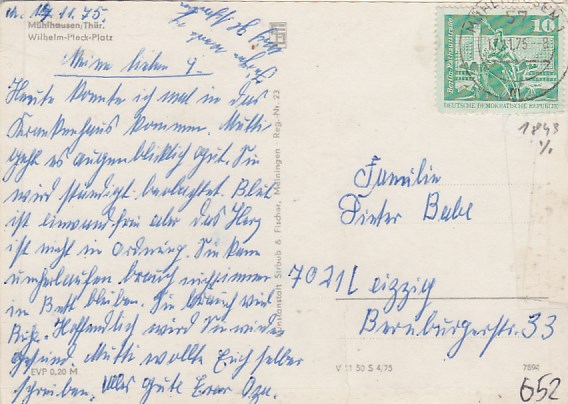 M. 17.11.75.
Mühlhausen/Thür.
Wilhelm-Pieck-Platz
Meine lieben 4.
Heute konnte ich mal in das
Krankenhaus kommen. Mutti
geht es augenblicklich gut. Sie
wird ständigt beobachtet. Blut
ist einwandfrei aber das Herz
ist nicht in Ordnung. Sie kann
umherlaufen brauch nicht immer
in Bett bleiben. Sie brauch viel
Ruhe. Hoffentlich wird Sie wieder
gesund. Mutti wollte Euch selber
schreiben. Alles Gute Euer Opa.
EVP 0,20 M
Straub & Fischer, Meiningen Reg.-Nr. 23
V 11 50 S 4,75
7894
MÜHLHAUSEN
57
17.11.75
10
DEUTSCHE DEMOKRATISCHE REPUBLIK
1843
Familie
Dieter Babe
7021 Leipzig
Bernburgerstr. 33
652